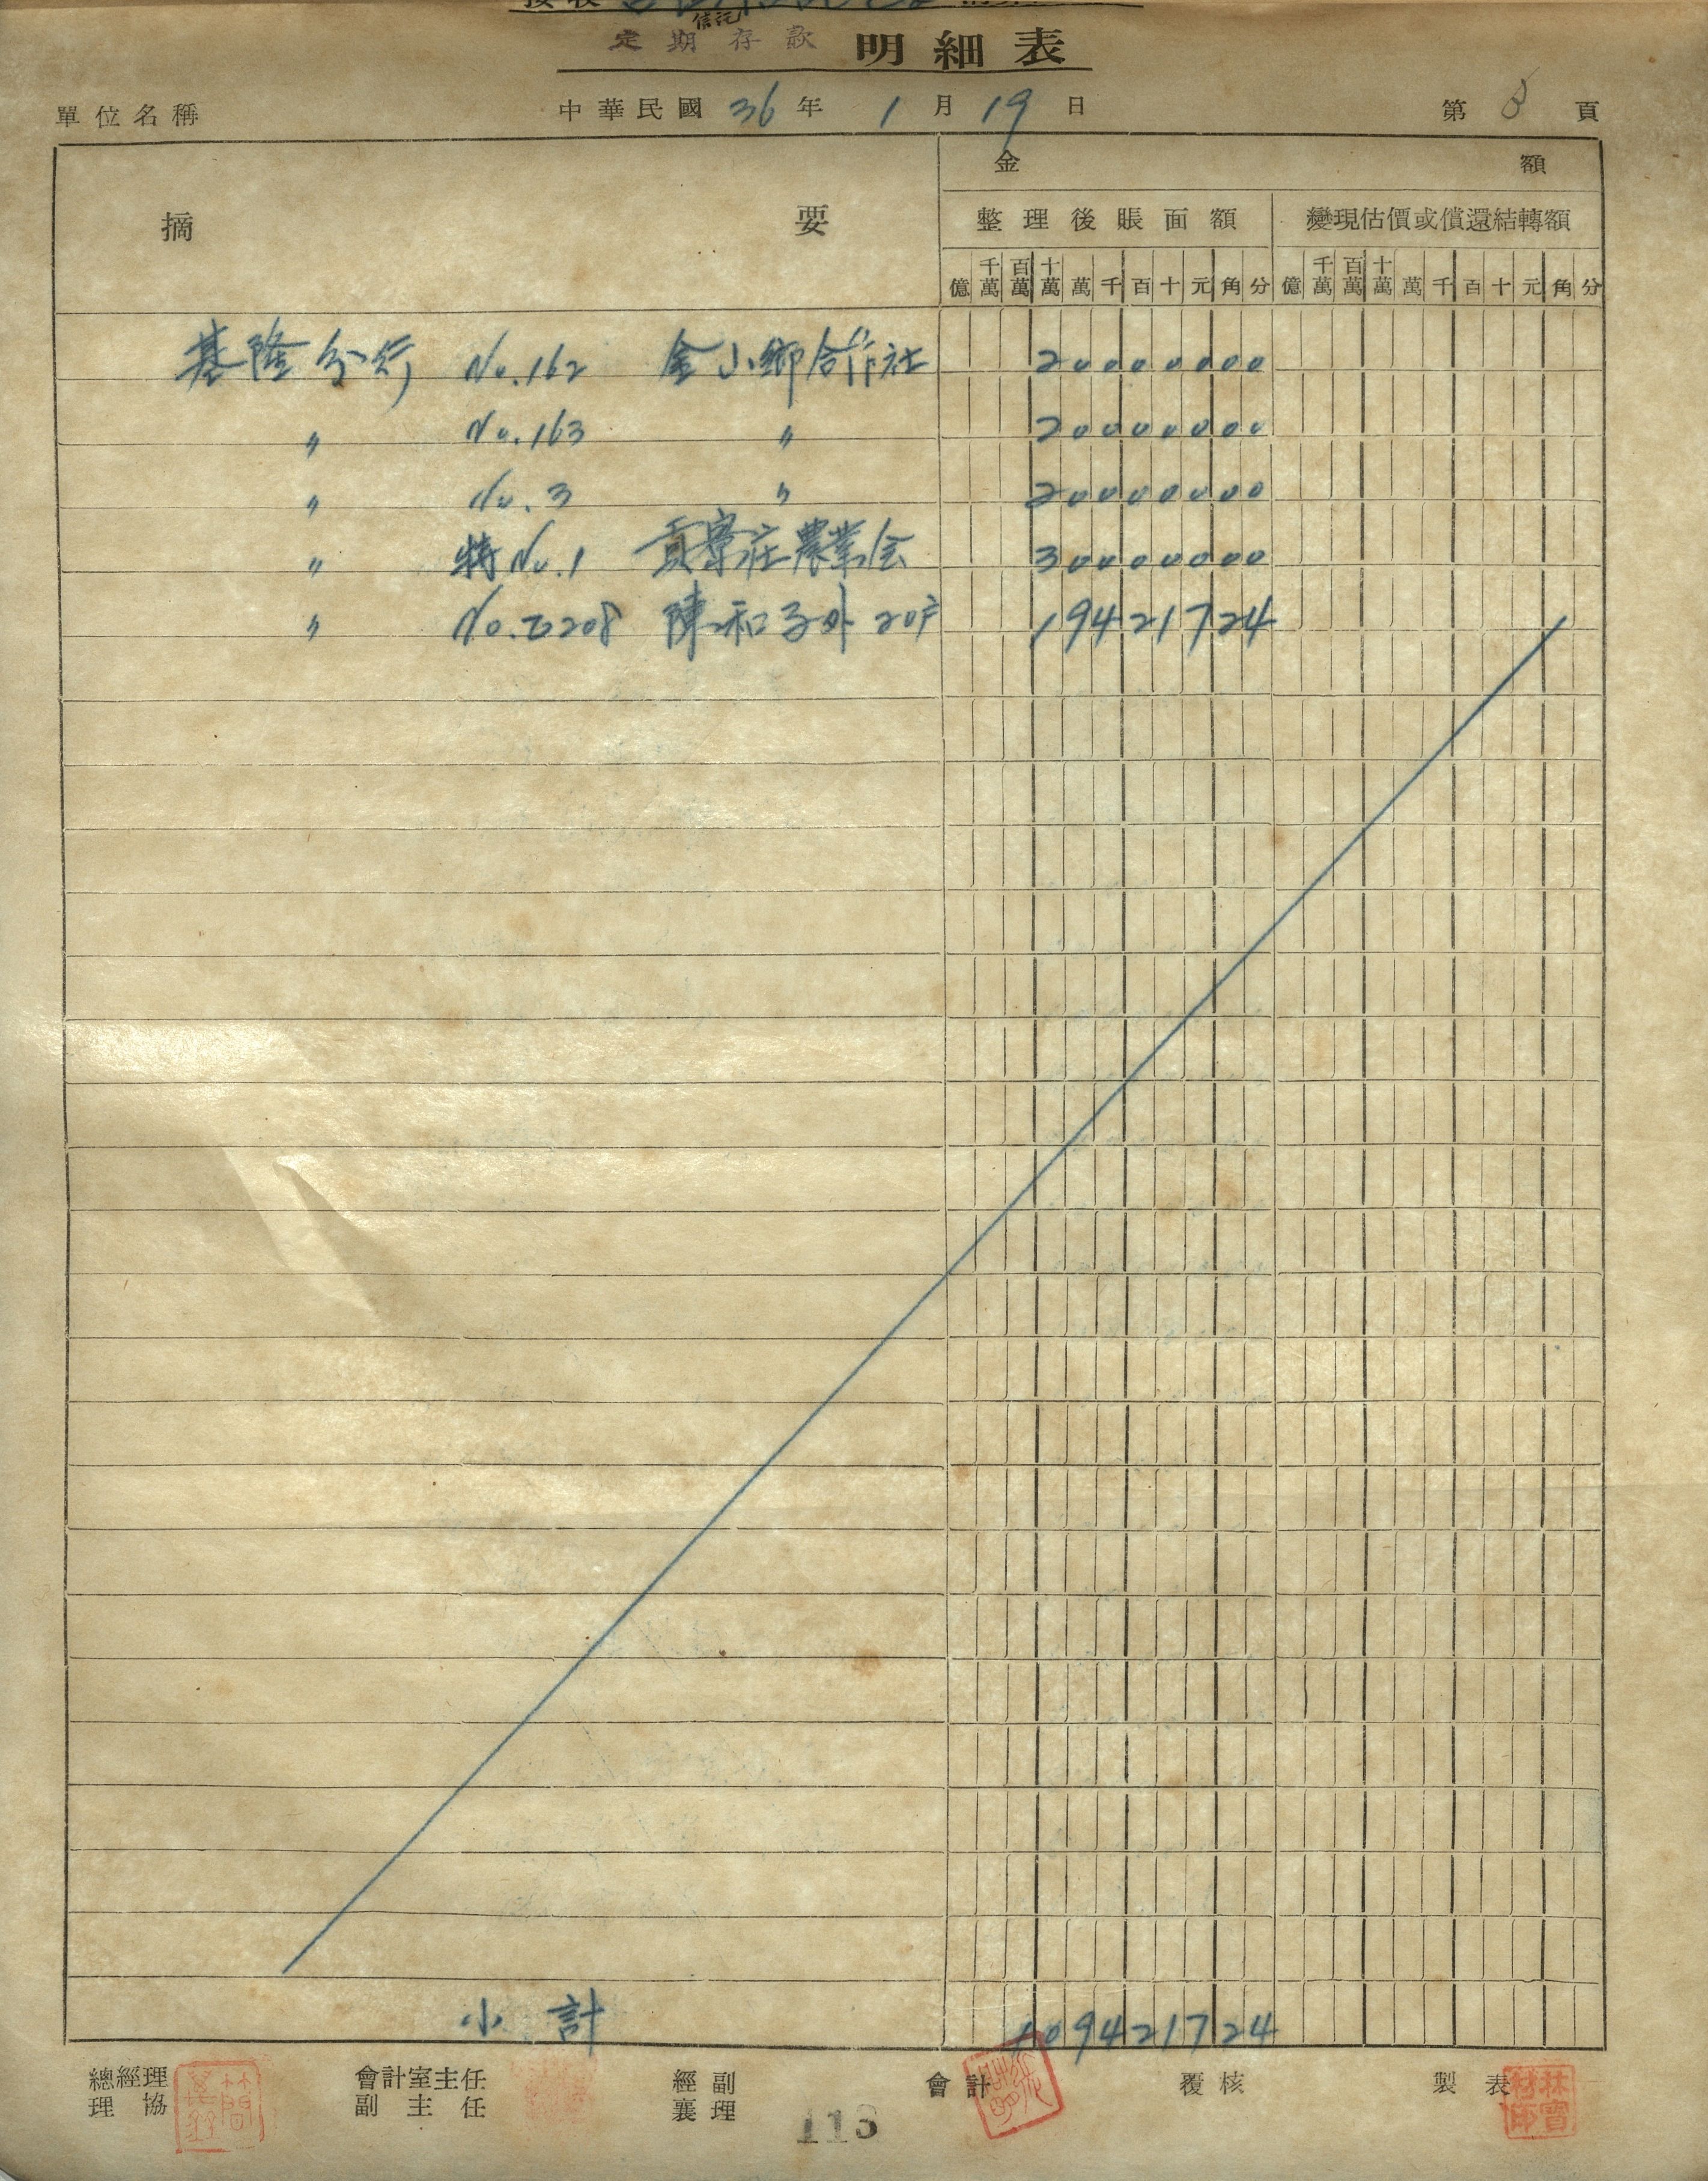 定期信託存款 明細表
單位名稱 中華民國36年1月19日 第3頁
摘要 金額
整理後賬面額 變現估價或償還結轉額
億 千萬 百萬 十萬 萬 千 百 十 元 角 分 億 千萬 百萬 十萬 萬 千 百 十 元 角 分
基隆分行 No.162 金山鄉合作社 20000000
〃 No.163 〃 20000000
〃 No.3 〃 20000000
〃 特No.1 貢寮庄農業会 30000000
〃 No.乙208 陳和子外20户 19421724
小計 109421724
總經理 協理 會計室主任 副主任 經副襄理 會計 覆核 製表
113